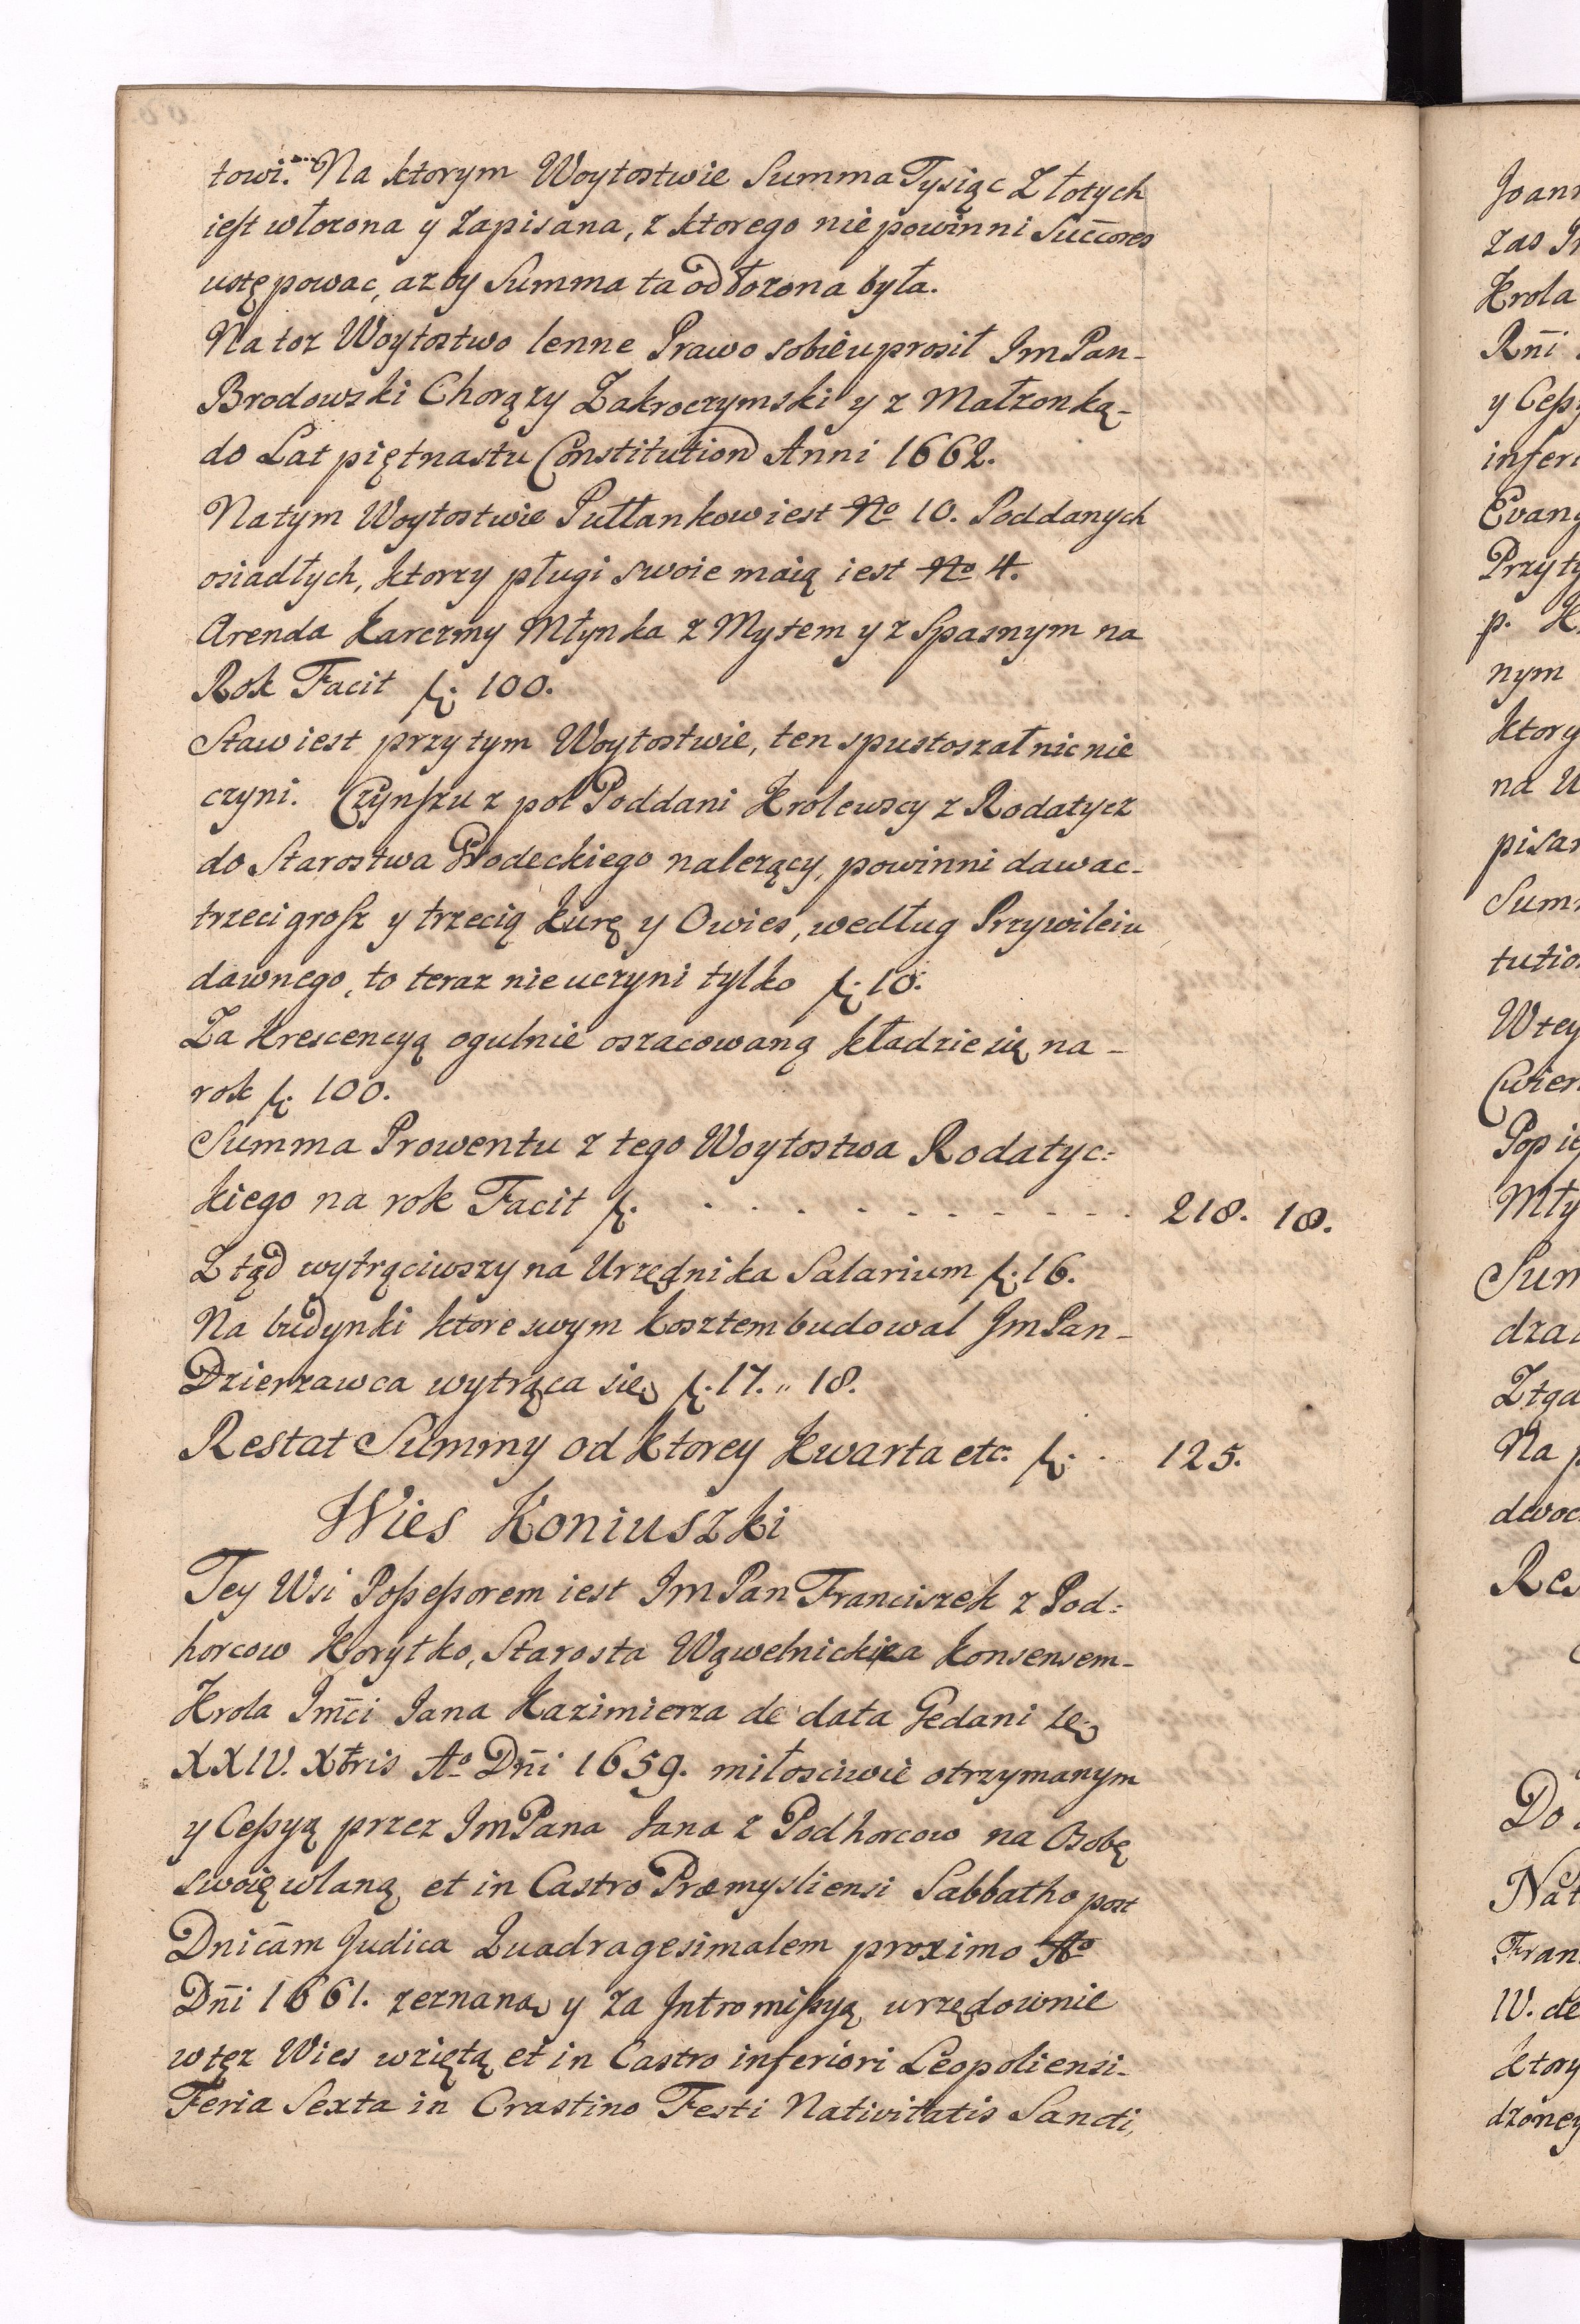 towi. Na ktorym Woytostwie Summa Tysiąc Złotych
iest włozona y zapisana, z ktorego nie powinni Succores
ustępowac, azby Summa ta odłozona była.
Na toz Woytostwo lenne Prawo sobie uprosił Im Pan-
Brodowski Chorązy Zakroczymski y z Małzonką-
do Lat piętnastu Constitution Anni 1662.
Na tym Woytostwie Pułłankow iest No 10. Poddanych
osiadłych, ktorzy pługi swoie maią iest No 4.
Arenda Karczmy Młynka z Mytem y z Spasnym na
Rok Facit f. 100.
Staw iest przy tym Woytostwie, ten spustoszał nic nie
czyni. Czynszu z pol Poddani Krolewscy z Rodatycz
do Starostwa Grodeckiego nalezący, powinni dawac-
trzeci grosz y trzecią kurę y Owies, według Przywileiu
dawnego, to teraz nie uczyni tylko f. 10.
Za Krescencyą ogulnie oszacowaną kładzie się na-
rok f. 100.
Summa Prowentu z tego Woytostwa Rodatyc:
kiego na rok Facit f. . . . . . . . . . . 218. 18.
Ztąd wytrąciwszy na Urzędnika Salarium f. 16.
Na budynki ktore swym kosztem budował Jm Pan-
Dzierzawca wytrąca się f. 17. " 18.
Restat Summy od ktorey kwarta etc. f. . 125.
Wies Koniuszki
Tey Wsi Possessorem iest Im Pan Franciszek z Pod:
horcow Korytko, Starosta Wąwelnicki za konsensem-
Krola Imci Jana Kazimierza de data Gedani
XXIV. Xbris Ao Dni 1659. miłosciwie otrzymanym
y Cessyą przez Im Pana Jana z Podhorcow na Osobę
swoię wlaną et in Castro Præmysliensi Sabbatho post
Dnicam Judica Quadragesimalem proximo Ao
Dni 1661. zeznaną y za Intromissyą urzędownie
w tęz Wies wziętą et in Castro inferiori Leopoliensi-
Feria Sexta in Crastino Festi Nativitatis Sancti